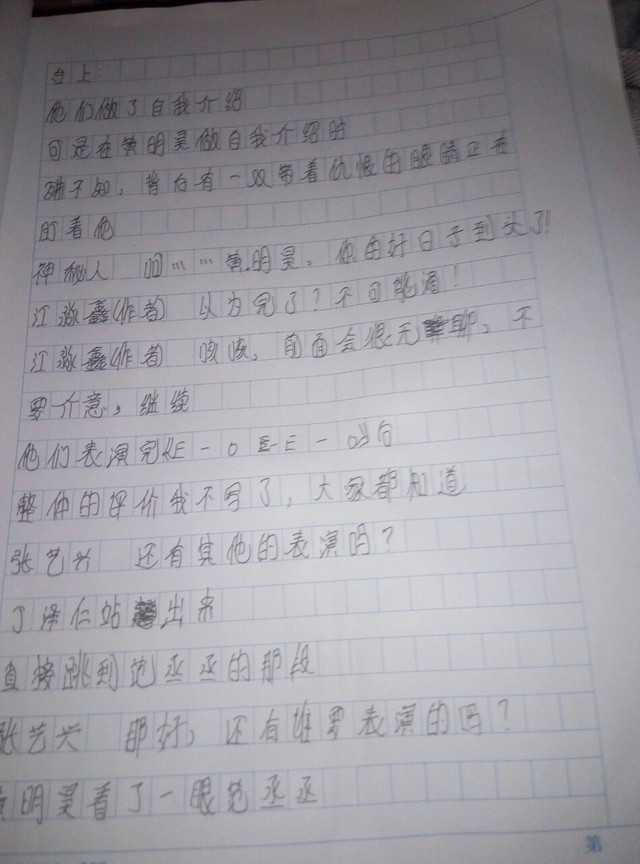 台上
他们做了自我介绍
可是在黄明昊做自我介绍时
殊不知，背后有一双带着仇恨的眼睛正在
盯着他
神秘人 呵……黄明昊，他的好日子到头了!
江淼鑫(作者) 以为完了?不可能滴!
江淼鑫(作者) 咳咳，前面会很无聊，不
要介意，继续
他们表演完《E－O E－E－O》后
整体的评价我不写了，大家都知道
张艺兴 还有其他的表演吗?
丁泽仁站出来
直接跳到范丞丞的那段
张艺兴 那好，还有谁要表演的吗?
黄明昊看了一眼范丞丞
第